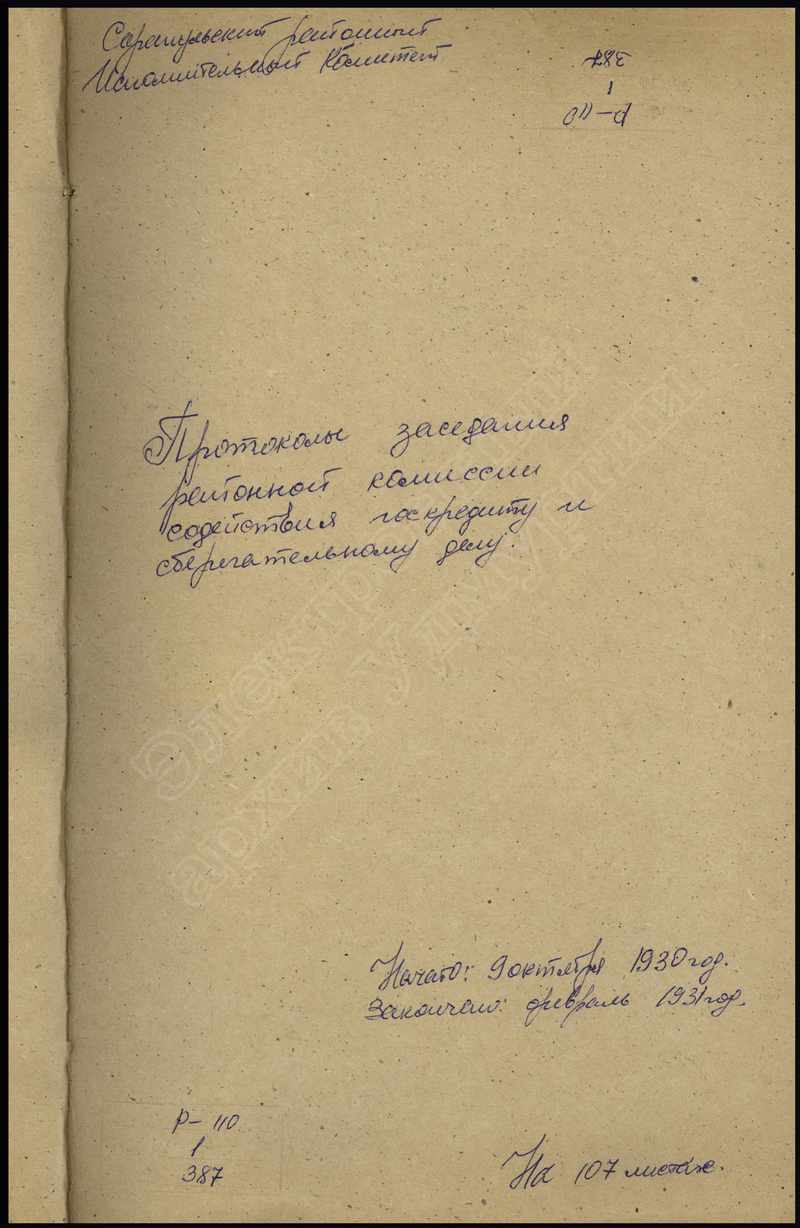 Сарапульский районный
Исполнительный Комитет
387
1
Р-110
Протоколы заседания
районной комиссии
содействия госкредиту и
сберегательному делу.
Электронный
архив Удмуртии
Начато: 9 октября 1930 год.
Закончено: февраль 1931 год.
Р-110
1
387
На 107 листах.